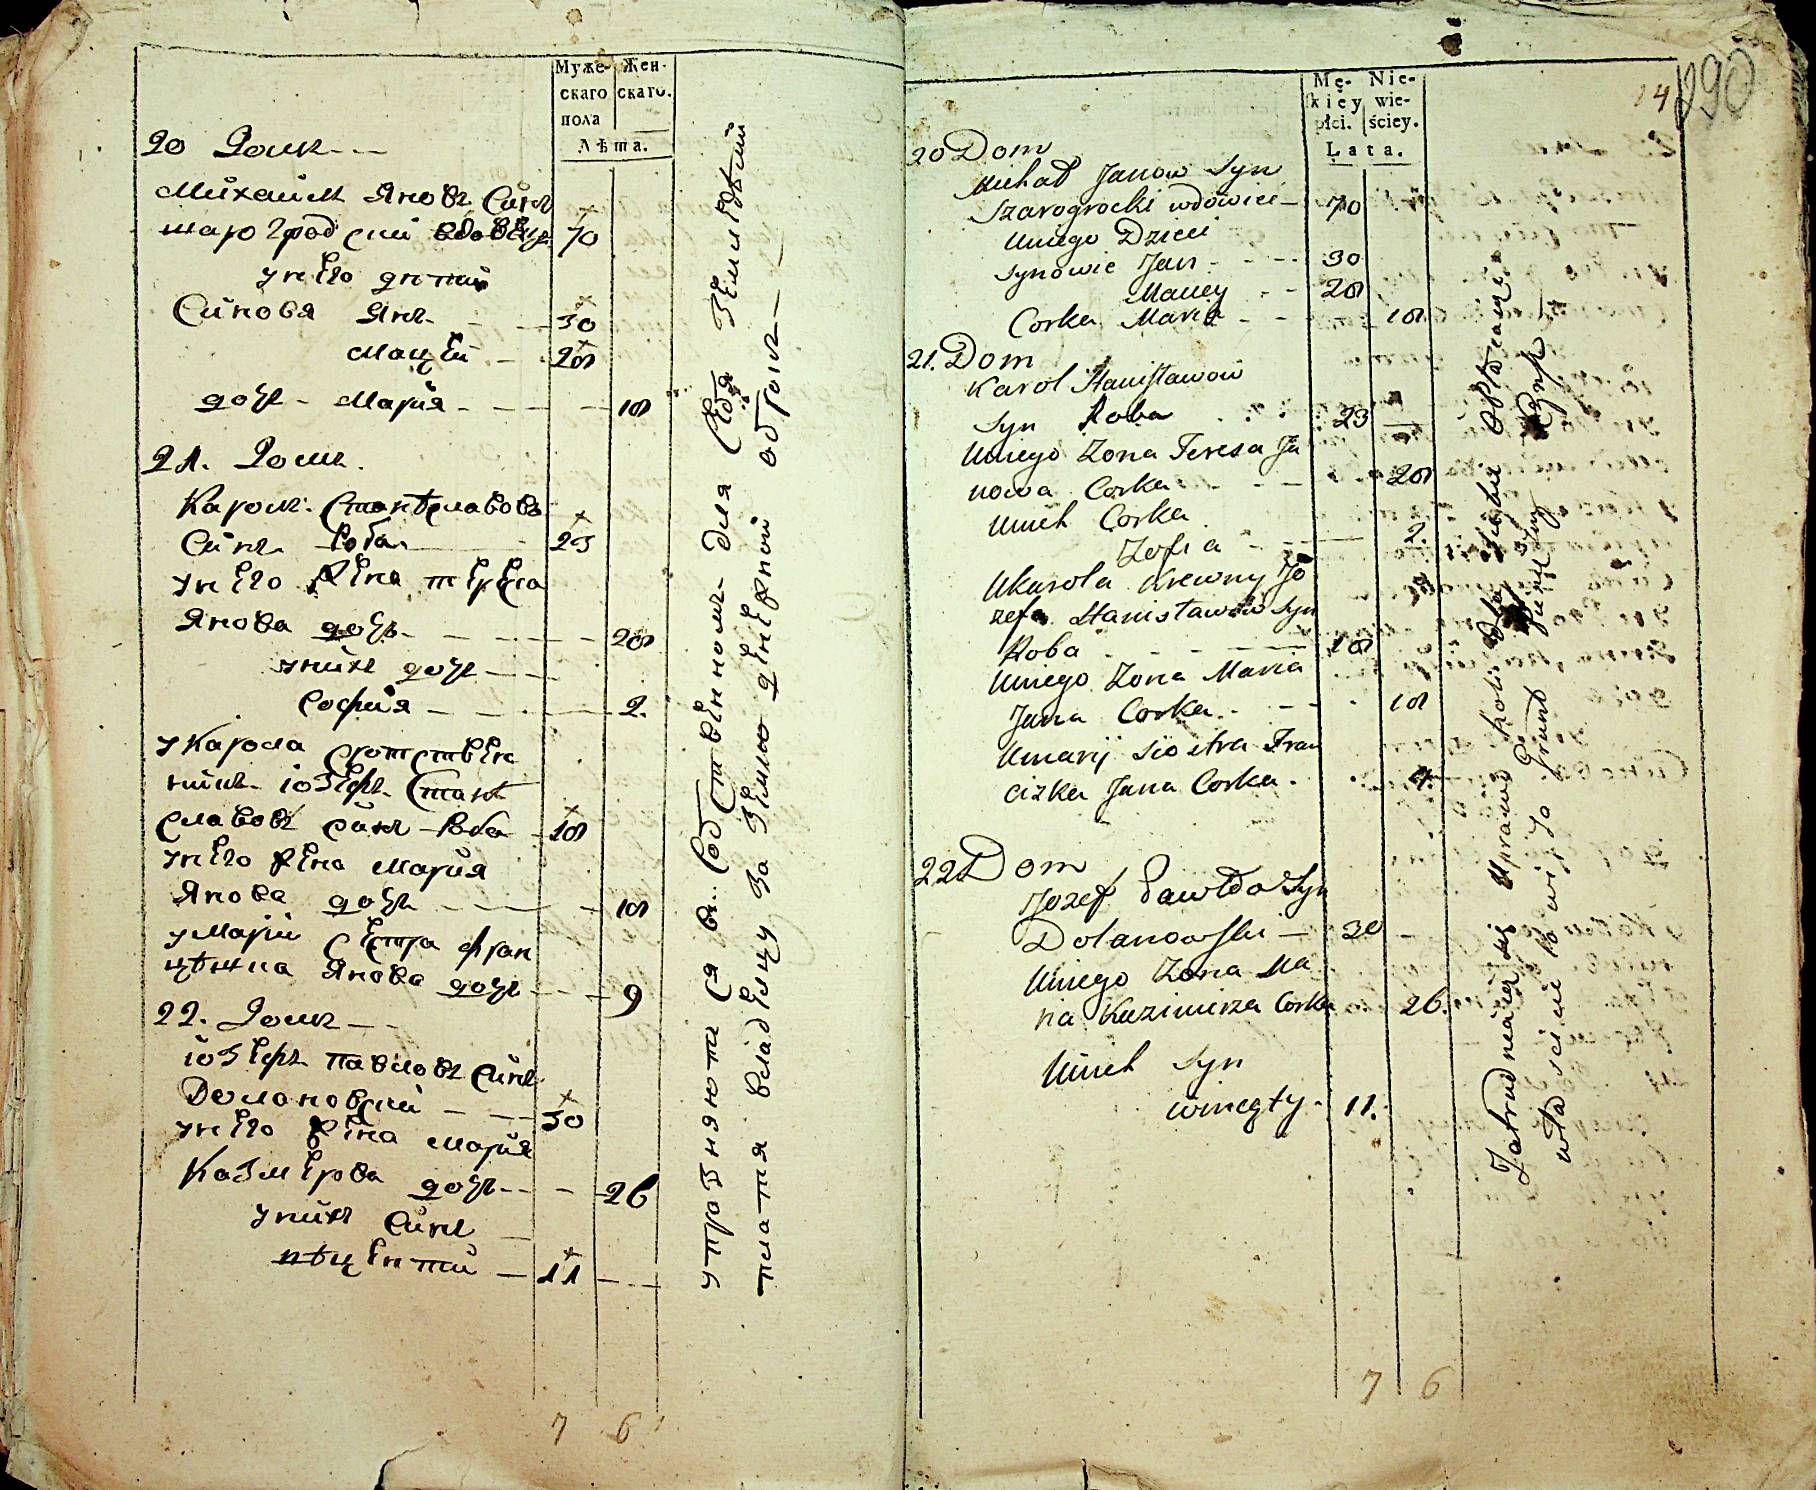 Муже-
скаго
пола
Жен-
скаго.
Лѣта.
20 Домъ
Михаилъ Яновъ Синъ
шарогродский вдовѣцъ 70
унего дѣтий
Синовя Янъ 30
Мацей 28
дочъ Мария 18
21. Домъ
Каролъ Станѣславовъ
Синъ Роба 23
унего жена тереса
Янова дочъ 28
унихъ дочъ
София 2
укарола сротствен
никъ iозефъ Станѣ
славовъ синъ Роба 18
унего жена Мария
Янова дочъ 18
уМарiи сестра фран
цѣшка Янова дочъ 9
22. Домъ
iозефъ павловъ синъ
Долановский 30
унего жена Мария
Казмерова дочъ 26
унихъ Синъ
вѣцентий 11
упражняются въ Собственномъ для Себя земледѣлий
платя владелцу за землю денежной оброкъ
7 6
14
290
Mę-
skiey
płci.
Nie-
wie-
ściey.
Lata.
20 Dom
Michał Janow Syn
Szarogrocki wdowiec 70
Uniego Dzieci
Synowie Jan 30
Maciey 28
Corka Maria 18
21. Dom
Karol Stanisławow
Syn Roba 23
Uniego Zona Teresa Ja
nowa Corka 28
Unich Corka
Zofia 2.
Ukarola Krewny Jo
zefa Stanisławow Syn
Roba 18
Uniego Zona Maria
Jana Corka 18
Umaryi siostra Fran
ciszka Jana Corka 9
22 Dom
Jozef Pawłow Syn
Dolanowski 30
Uniego Zona Ma
ria Kazimirza Corka 26.
Unich Syn
Wincęty 11.
Zatrudniaią się uprawą Roli dla siebie opłacaiąc
właścicielowi za grunt czynsz
7 6